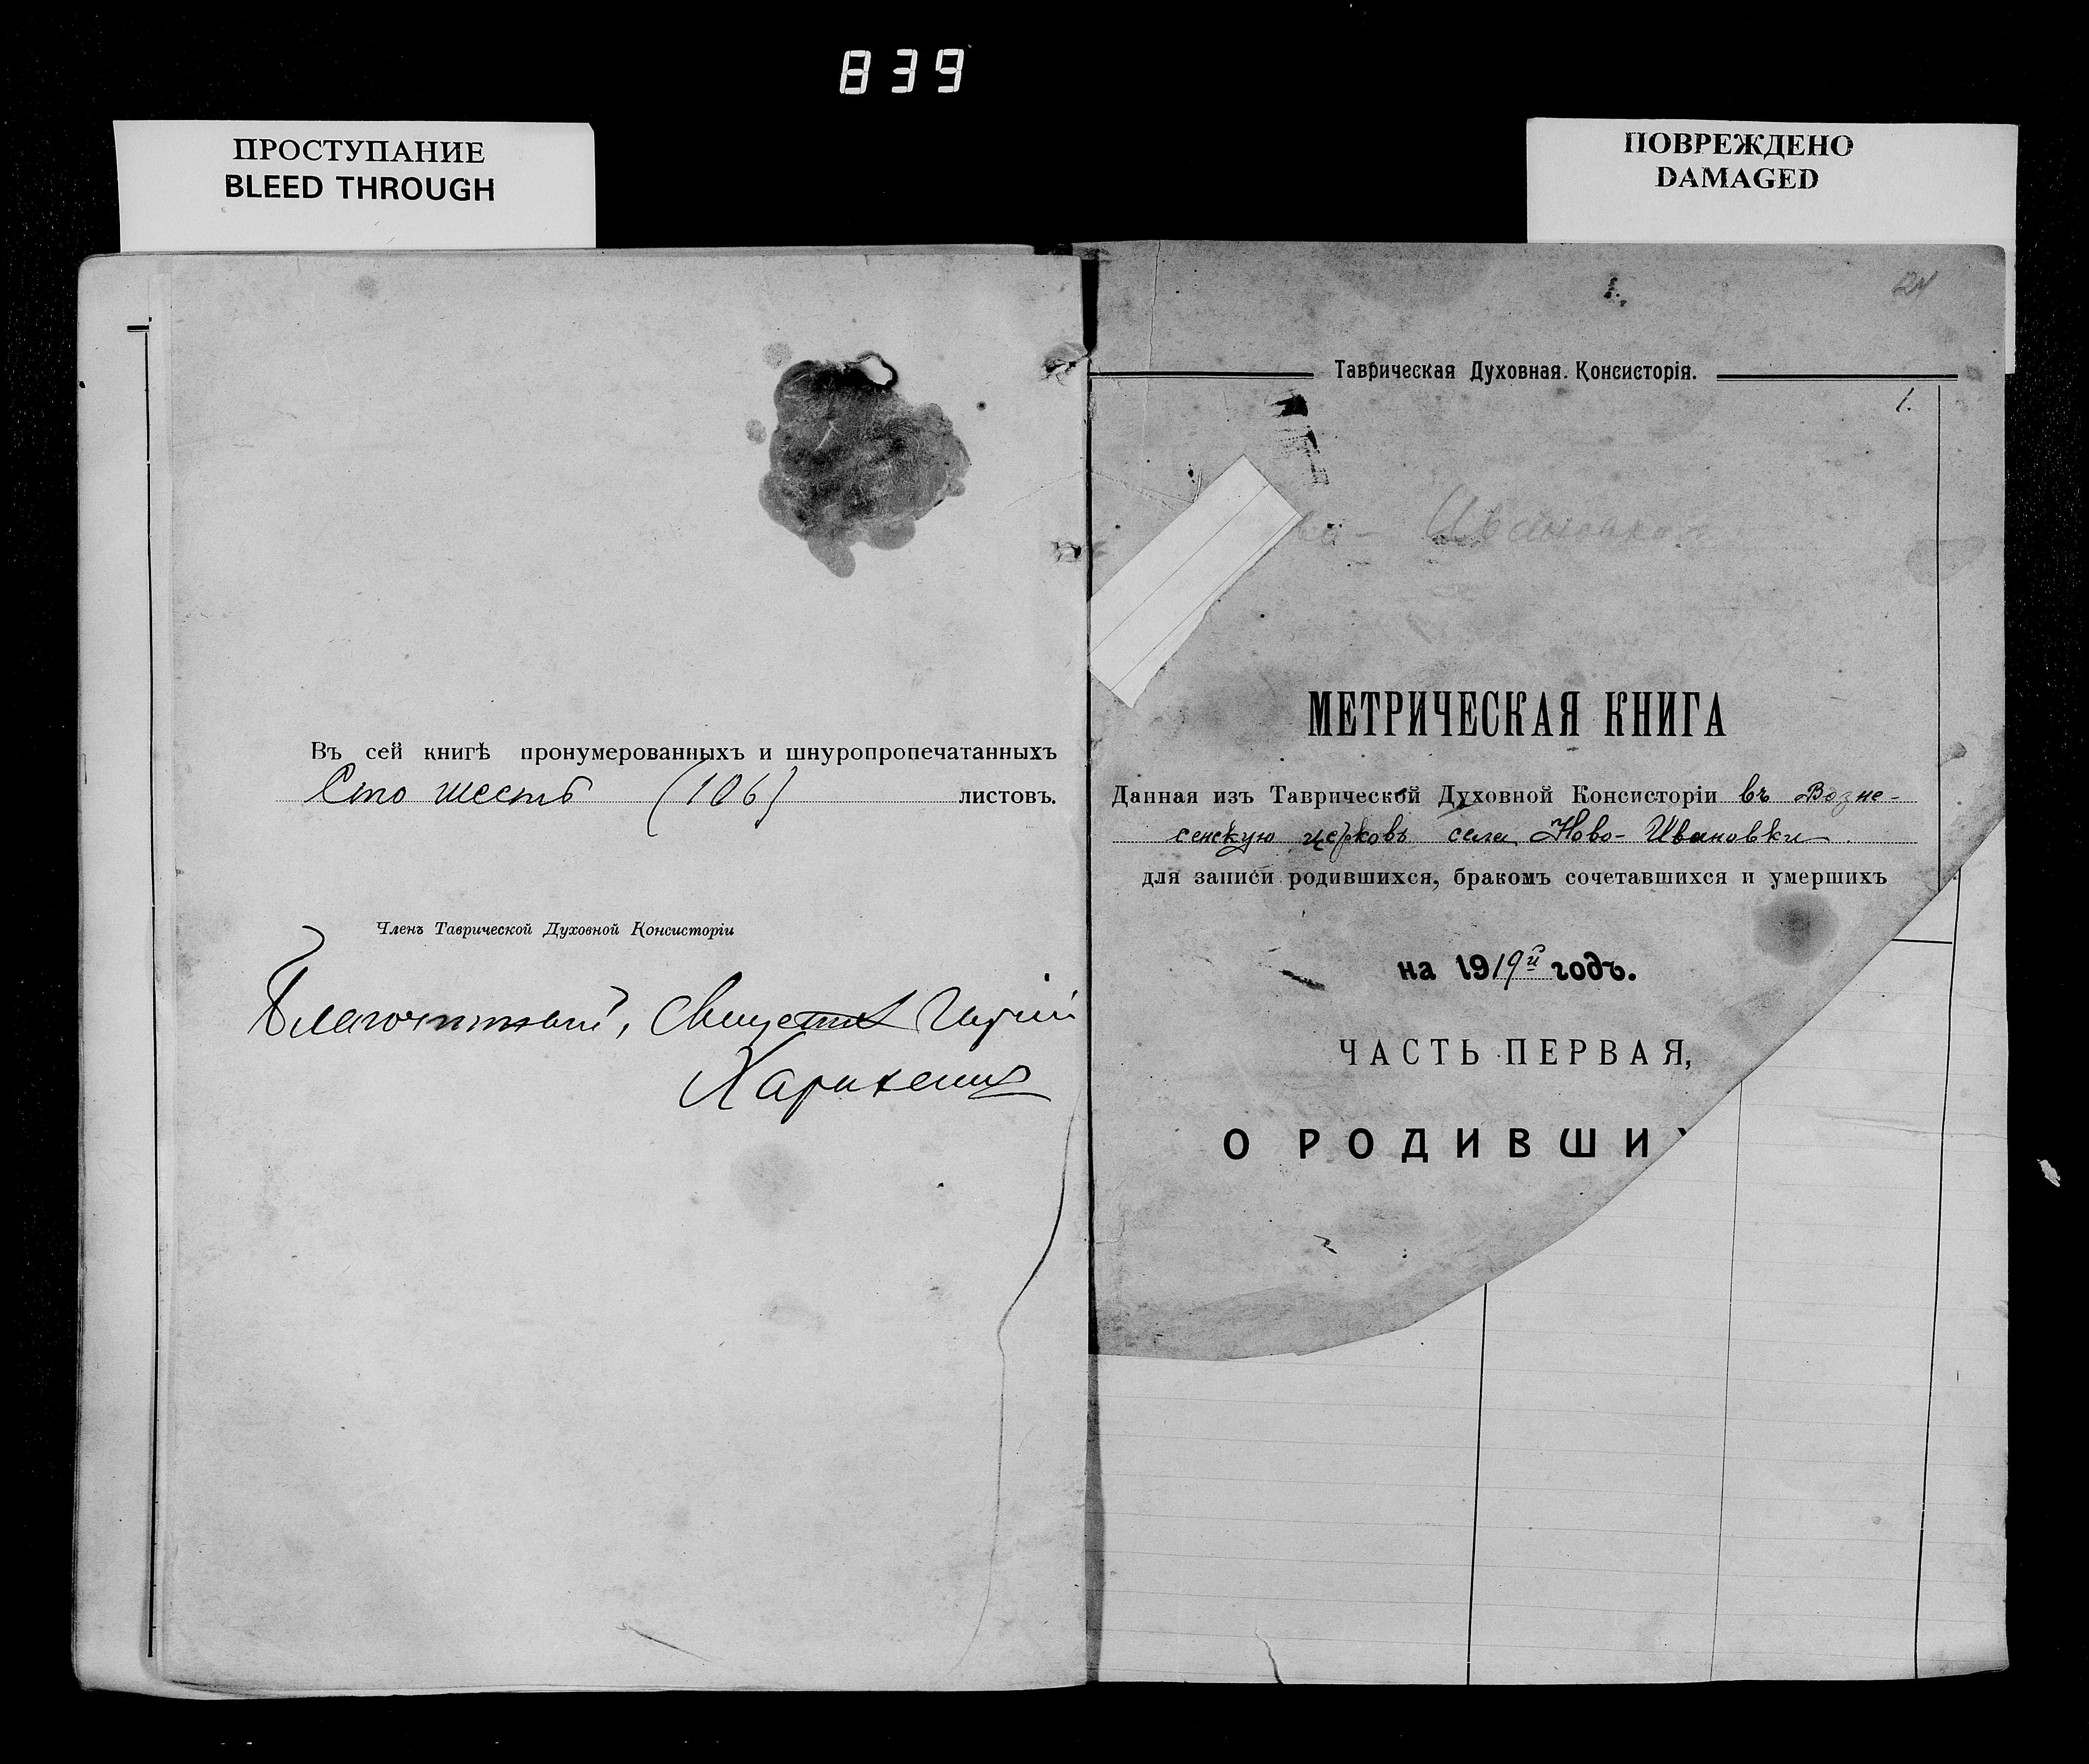 839
ПРОСТУПАНИЕ
BLEED THROUGH
ПОВРЕЖДЕНО
DAMAGED
Въ сей книгѣ пронумерованныхъ и шнуропропечатанныхъ
Сто шесть (106) листовъ.
Членъ Таврической Духовной Консисторіи
Благочинный, Священник
1.
Таврическая Духовная Консисторія.
1.
Ивановка
МЕТРИЧЕСКАЯ КНИГА
Данная изъ Таврической Духовной Консисторіи въ Возне-
сенскую церковь села Ново-Ивановки.
для записи родившихся, бракомъ сочетавшихся и умершихъ
на 1919й годъ.
ЧАСТЬ ПЕРВАЯ,
О РОДИВШИХ